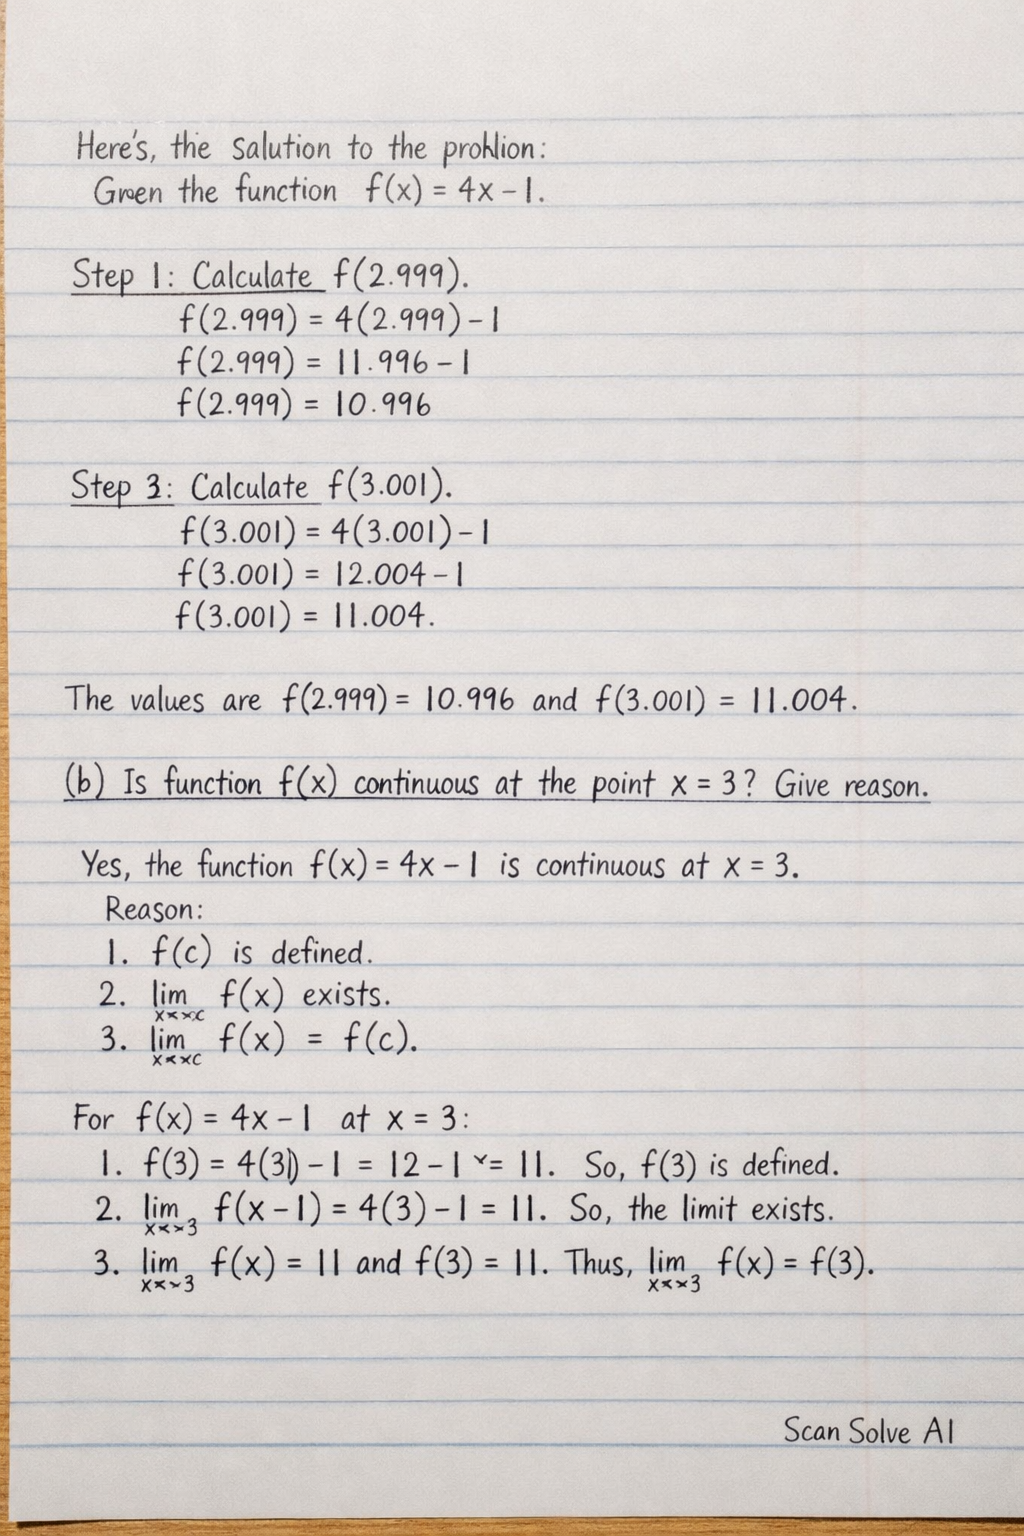 Here's, the Salution to the prohlion:
Green the function f(x) = 4x - 1.
Step 1: Calculate f(2.999).
f(2.999) = 4(2.999) - 1
f(2.999) = 11.996 - 1
f(2.999) = 10.996
Step 3: Calculate f(3.001).
f(3.001) = 4(3.001) - 1
f(3.001) = 12.004 - 1
f(3.001) = 11.004.
The values are f(2.999) = 10.996 and f(3.001) = 11.004.
(b) Is function f(x) continuous at the point x = 3? Give reason.
Yes, the function f(x) = 4x - 1 is continuous at x = 3.
Reason:
1. f(c) is defined.
2. lim f(x) exists.
3. lim f(x) = f(c).
For f(x) = 4x - 1 at x = 3:
1. f(3) = 4(3)) - 1 = 12 - 1 = 11. So, f(3) is defined.
2. lim f(x - 1) = 4(3) - 1 = 11. So, the limit exists.
3. lim f(x) = 11 and f(3) = 11. Thus, lim f(x) = f(3).
Scan Solve AI